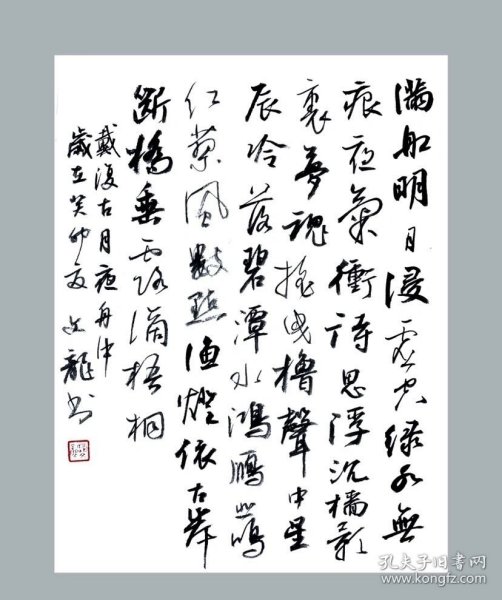 滿船明月浸虚空绿水無
痕夜氣衝诗思浮沉樯影
裏夢魂摇曳櫓聲中星
辰冷落碧潭水鴻鴈悲鳴
红蓼風數點渔燈依古岸
斷橋垂露滴梧桐
戴復古月夜舟中
歲在癸卯夏文龍书
孔夫子旧书网
www.kongfz.com